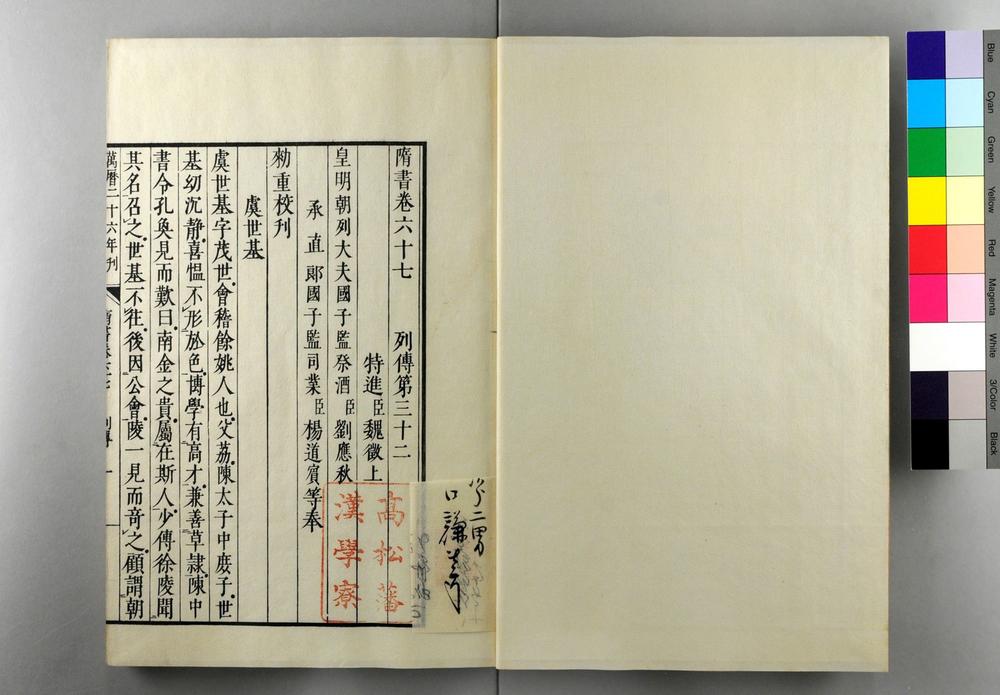 隋書卷六十七 列傳第三十二
特進臣魏徵上
皇明朝列大夫國子監祭酒臣劉應秋
承直郞國子監司業臣楊道賓等奉
勑重校刊
虞世基
虞世基字茂世會稽餘姚人也父荔陳太子中庶子世
基幼沉静喜慍不形於色博學有高才兼善草隷陳中
書令孔奐見而歎曰南金之貴屬在斯人少傅徐陵聞
其名召之世基不往後因公會陵一見而竒之顧謂朝
萬曆二十六年刊
高松藩
漢學寮
Blue
Cyan
Green
Yellow
Red
Magenta
White
3/Color
Black